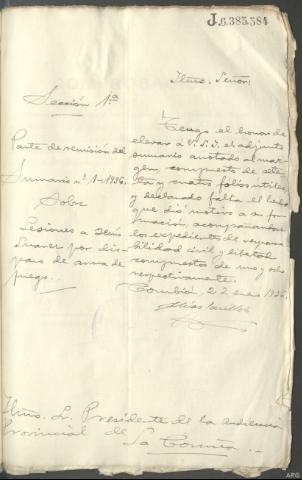 J.6.385.584
Iltmo. Señor:
Sección 1ª
Parte de remisión del
Sumario nº 1-1936.
Sobre
Lesiones a
Suarez por dis-
paro de arma de
fuego.
Tengo el honor de
elevar a V.S.I. el adjunto
sumario anotado al mar-
gen, compuesto de sete
ta y cuatro folios utiles,
y declarado falta el hecho
que dió motivo a su for
mación, acompañandose
los expedientes de respons
bilidad civil y libertad
compuestos de uno y seis
respectivamente.
Corcubión, 22 enero 1936.
Iltmo. Sr. Presidente de la Audiencia
Provincial de
La Coruña.-
ARG